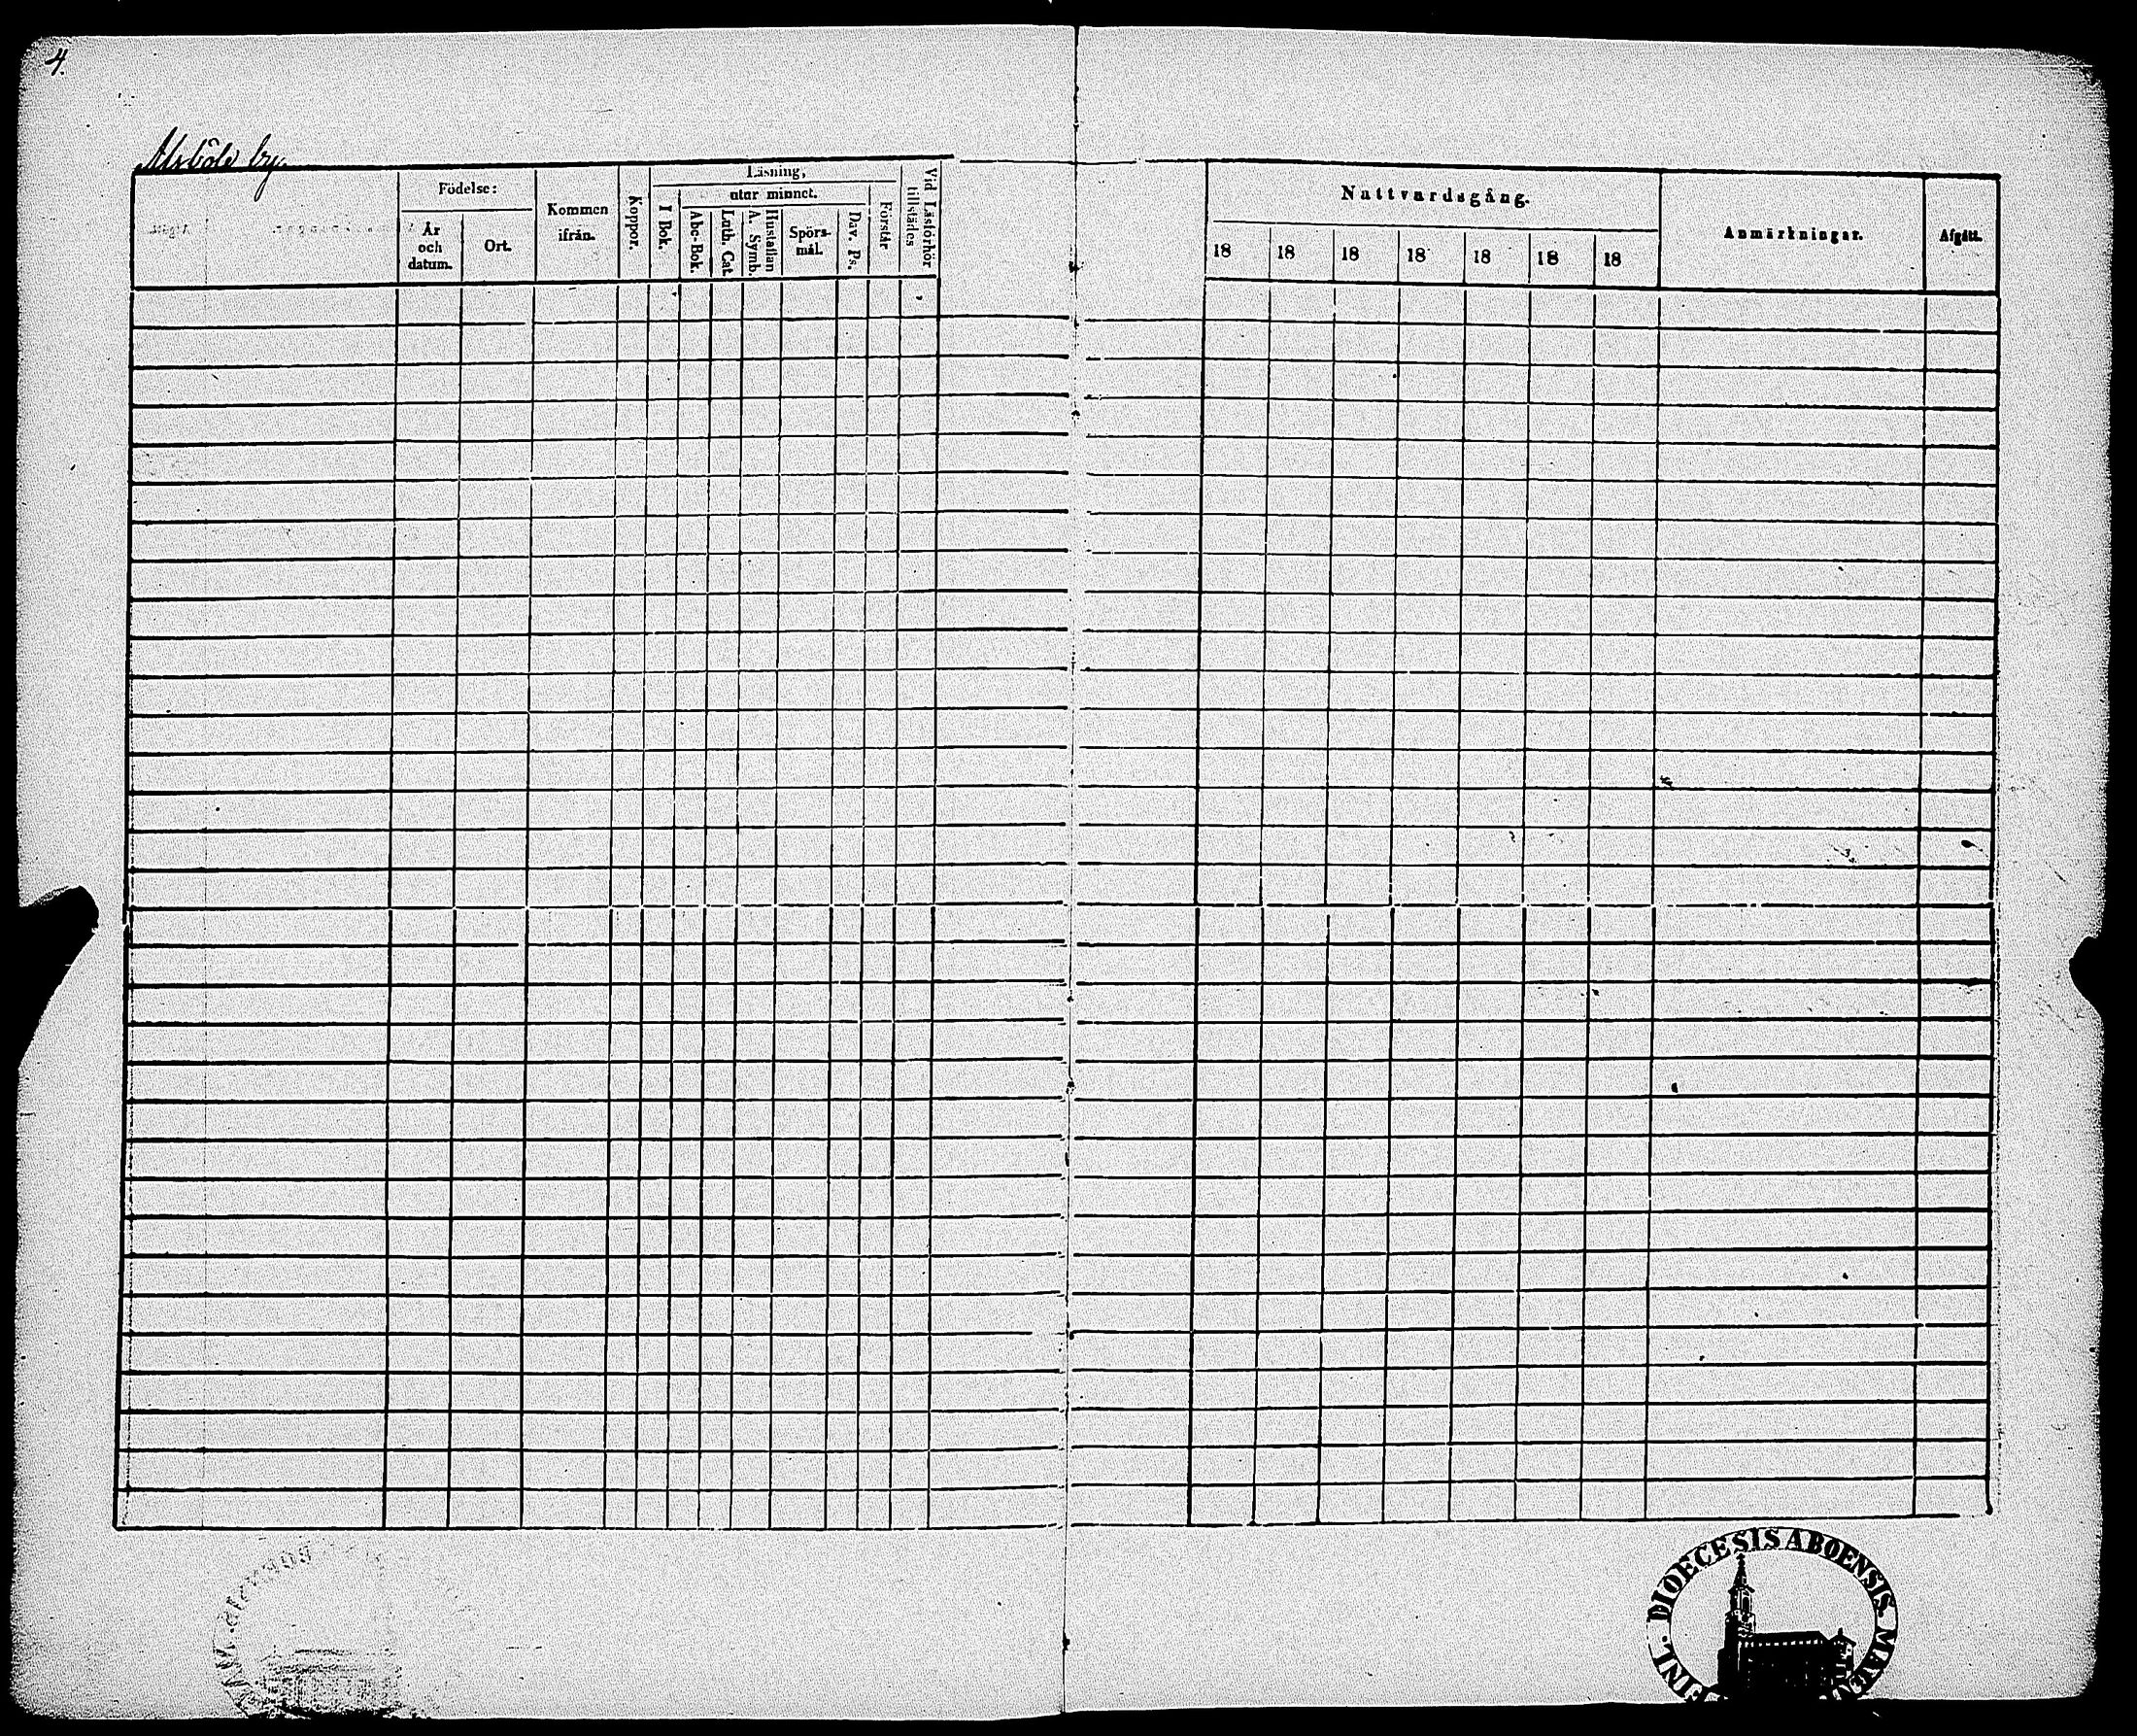 4.
by
Födelse:
År
och
datum.
Ort.
Kommen
ifrån.
Koppor.
Läsning,
utur minnet.
I Bok.
Abc-Bok.
Luth. Cat.
Hustaflan
A. Symb.
Spörs-
mål.
Dav. Ps.
Förstår
Vid Läsförhör
tillstädes
Nattvardsgång.
18 18 18 18 18 18 18
Anmärkningar.
Afgått.
DIOECESIS ABOENSIS